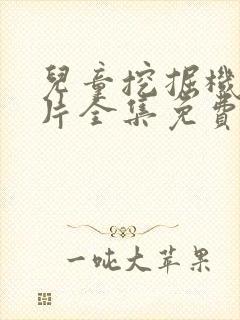 兒童挖掘機
片全集免費
一吨大苹果